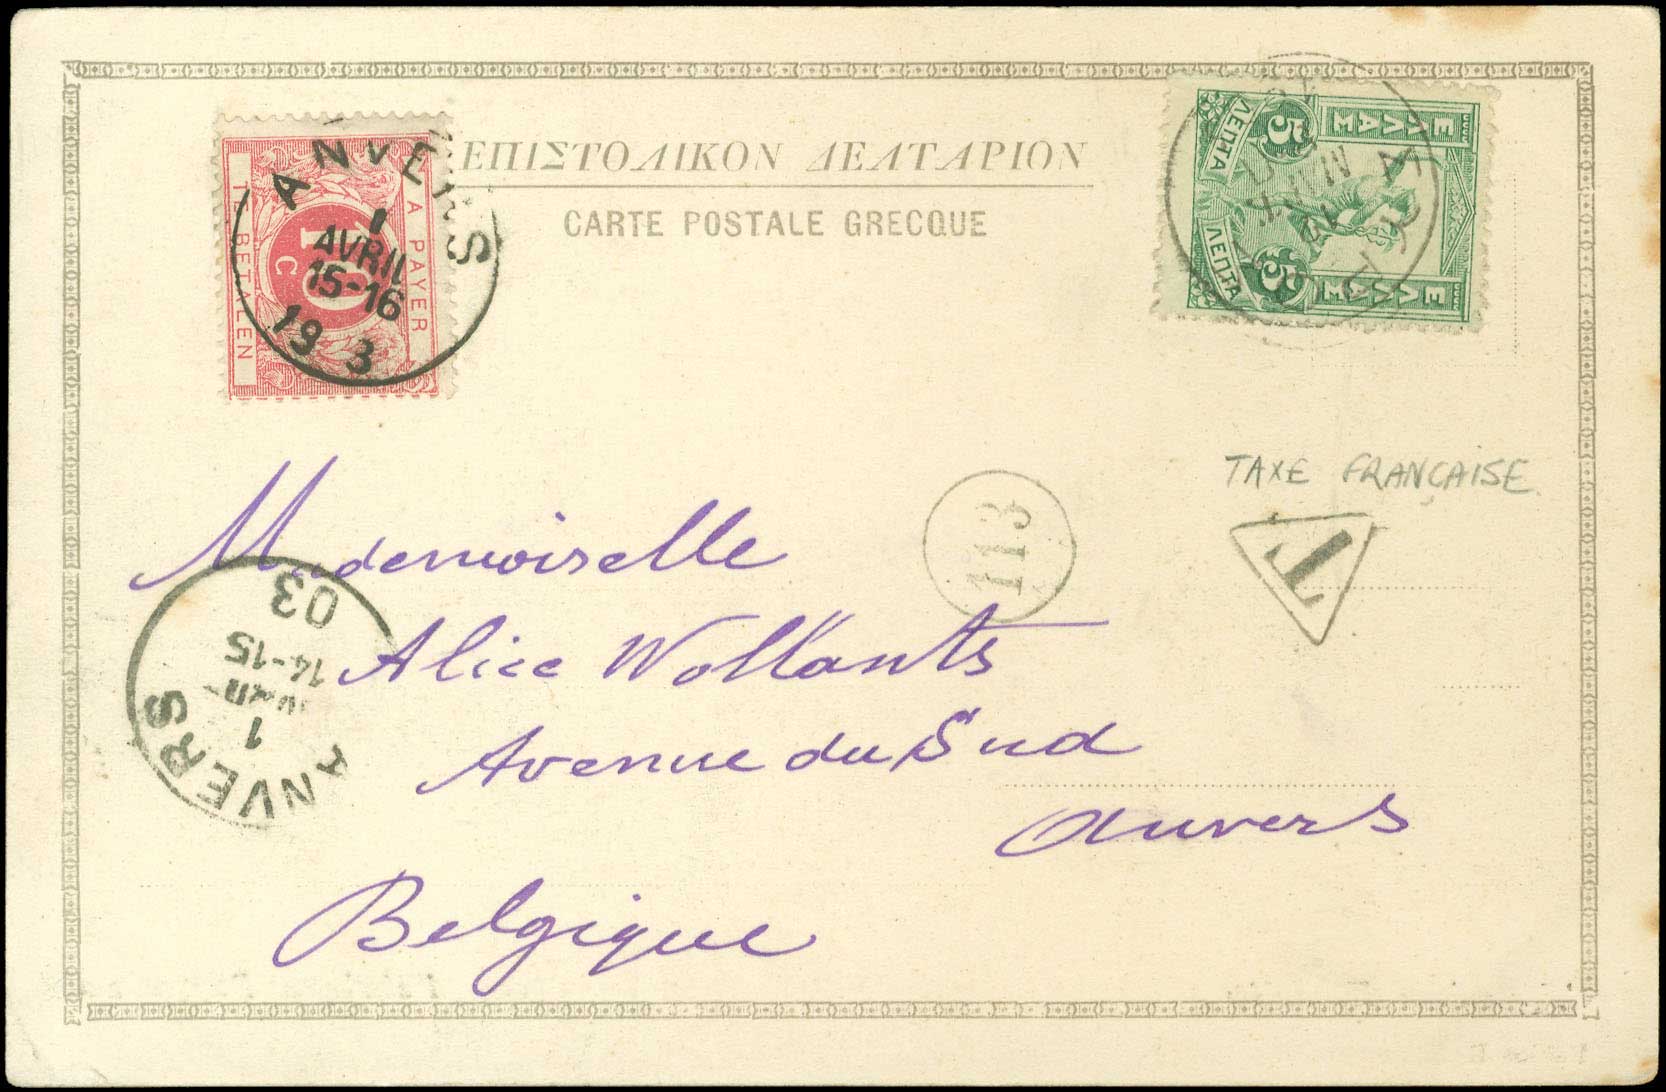 ΕΠΙΣΤΟΛΙΚΟΝ ΔΕΛΤΑΡΙΟΝ
CARTE POSTALE GRECQUE
A PAYER
10
C
TE BETALEN
ANVERS
1
AVRIL
15-16
19 3
ΕΛΛΑΣ
5 ΛΕΠΤΑ
5 ΛΕΠΤΑ
ΕΛΛΑΣ
TAXE FRANÇAISE
T
113
Mademoiselle
Alice Wollants
Avenue du Sud
Anvers
Belgique
ANVERS
1
14-15
03